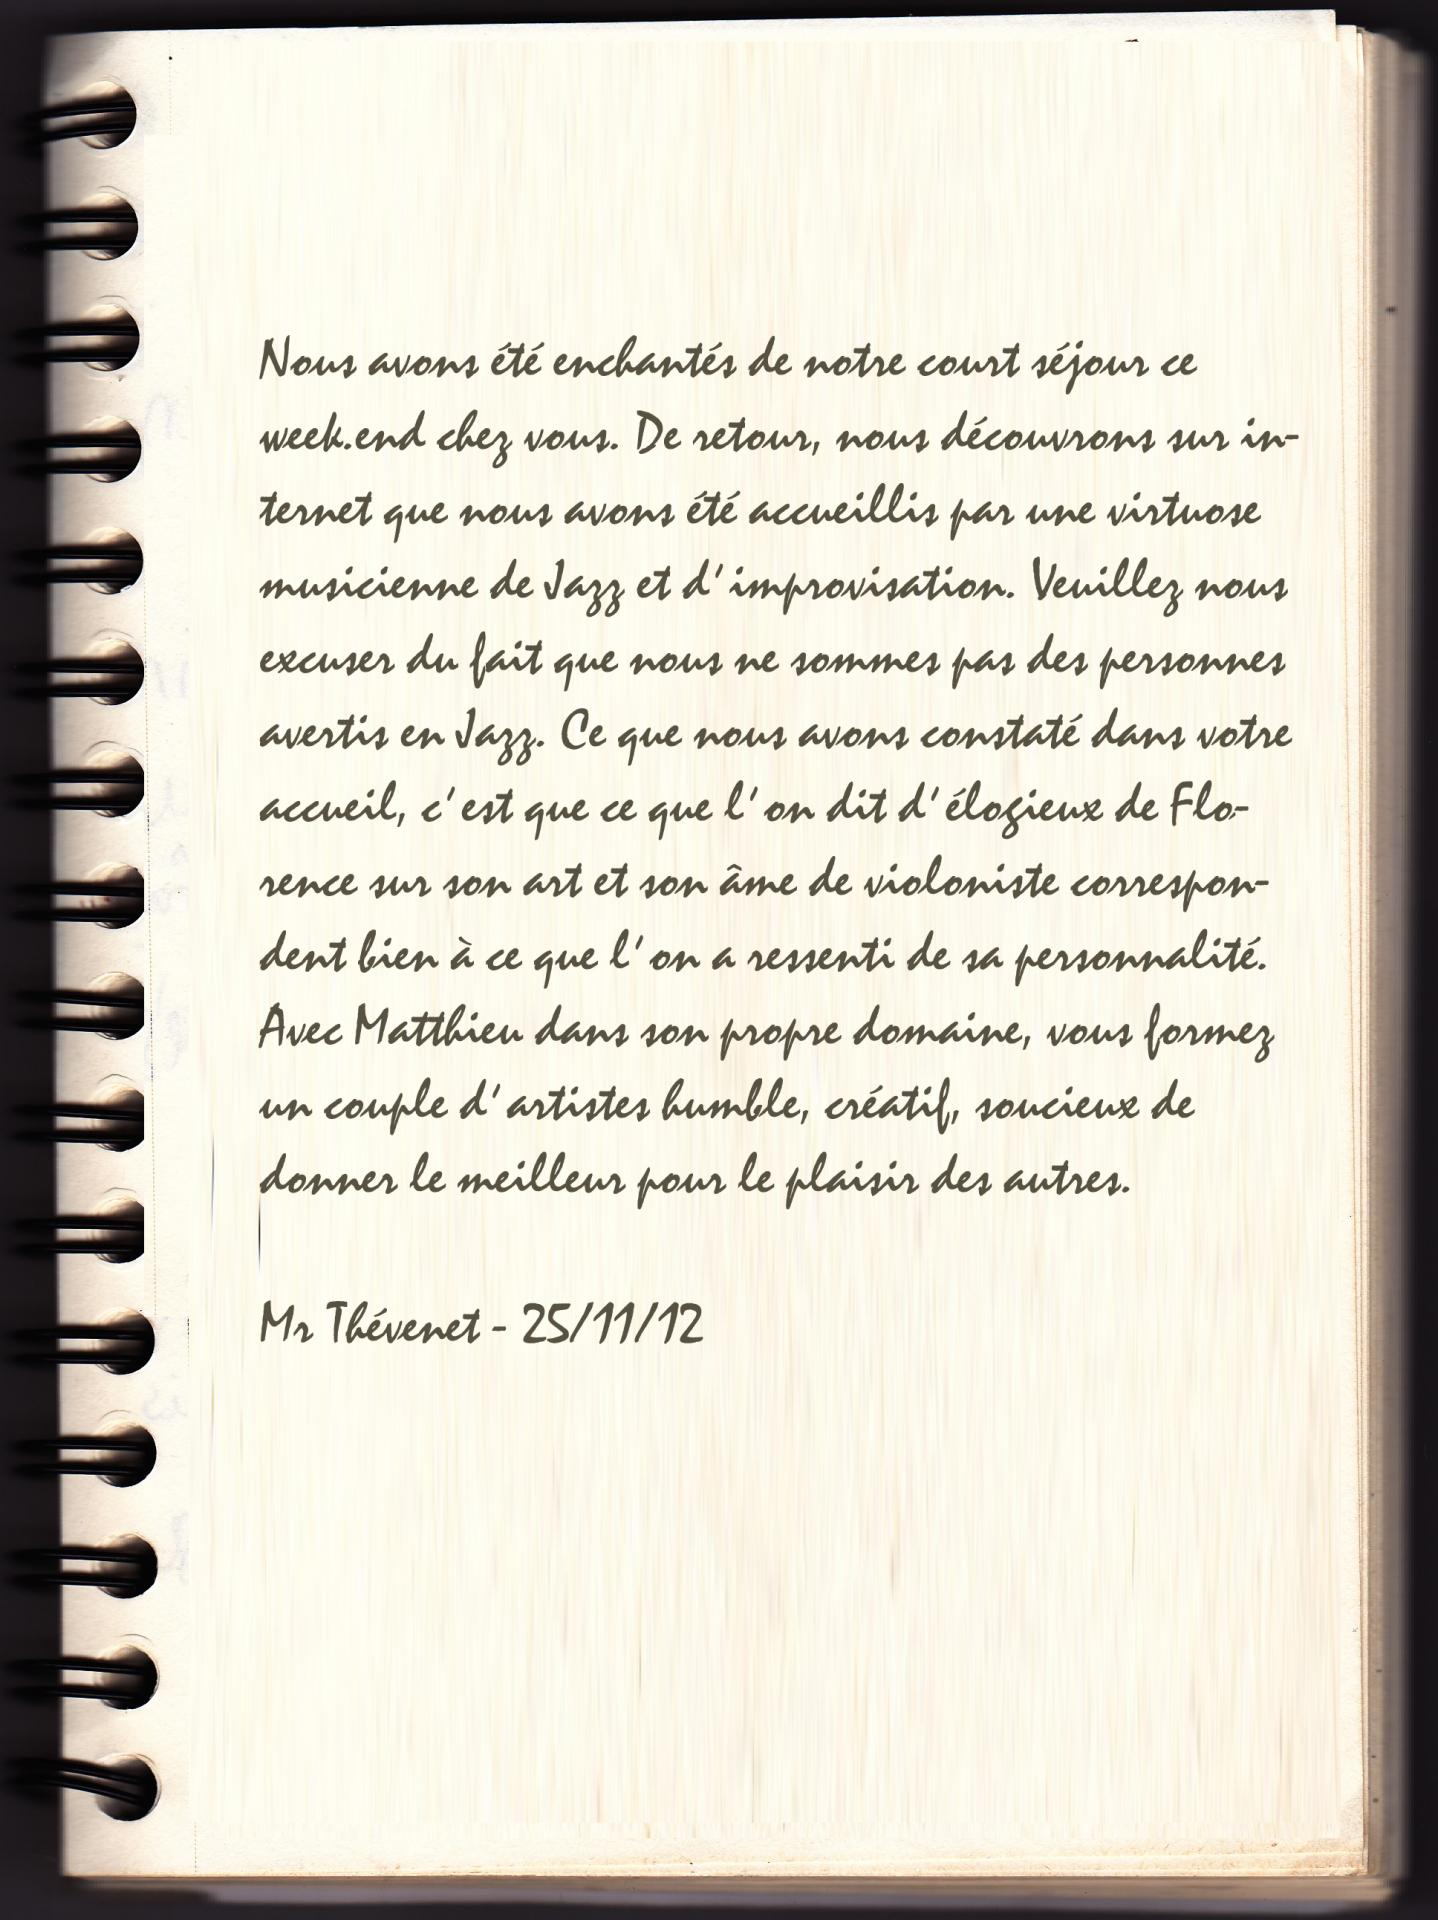 Nous avons été enchantés de notre court séjour ce
week.end chez vous. De retour, nous découvrons sur in-
ternet que nous avons été accueillis par une virtuose
musicienne de Jazz et d'improvisation. Veuillez nous
excuser du fait que nous ne sommes pas des personnes
avertis en Jazz. Ce que nous avons constaté dans votre
accueil, c'est que ce que l'on dit d'élogieux de Flo-
rence sur son art et son âme de violoniste correspon-
dent bien à ce que l'on a ressenti de sa personnalité.
Avec Matthieu dans son propre domaine, vous formez
un couple d'artistes humble, créatif, soucieux de
donner le meilleur pour le plaisir des autres.
Mr Thévenet - 25/11/12